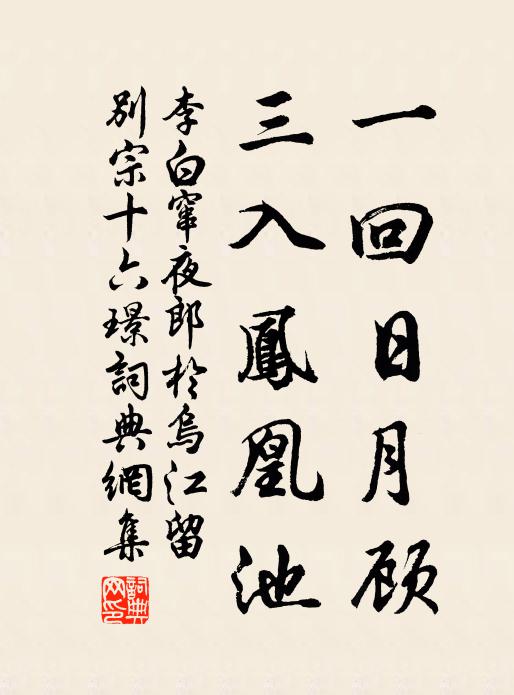 一回日月顾
三入鳳凰池
李白竄夜郎於烏江留
别宗十六璟詞典網集
詞典
网印